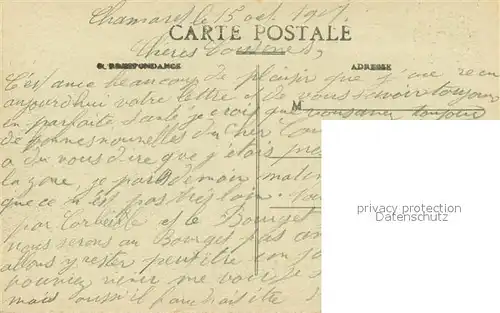 Chamaret le 15 oct. 1917.
CARTE POSTALE
Chères Cousines,
CORRESPONDANCE
ADRESSE
C'est avec beaucoup de plaisir que j'ai recu
aujourdhui votre lettre et de vous savoir toujour
M
en parfaite santé je crois que vous avez toujour
de bonnes nouvelles du cher
a du vous dire que j'étais
la zone, je pars demain matin
que ce n'est pas très loin.
par Corbeille et le Bourget
nous serons au Bourget pas
allons y rester peut être un jo
pouvez venir me voir je s
mais aussi il faudrait être s
privacy protection
Datenschutz